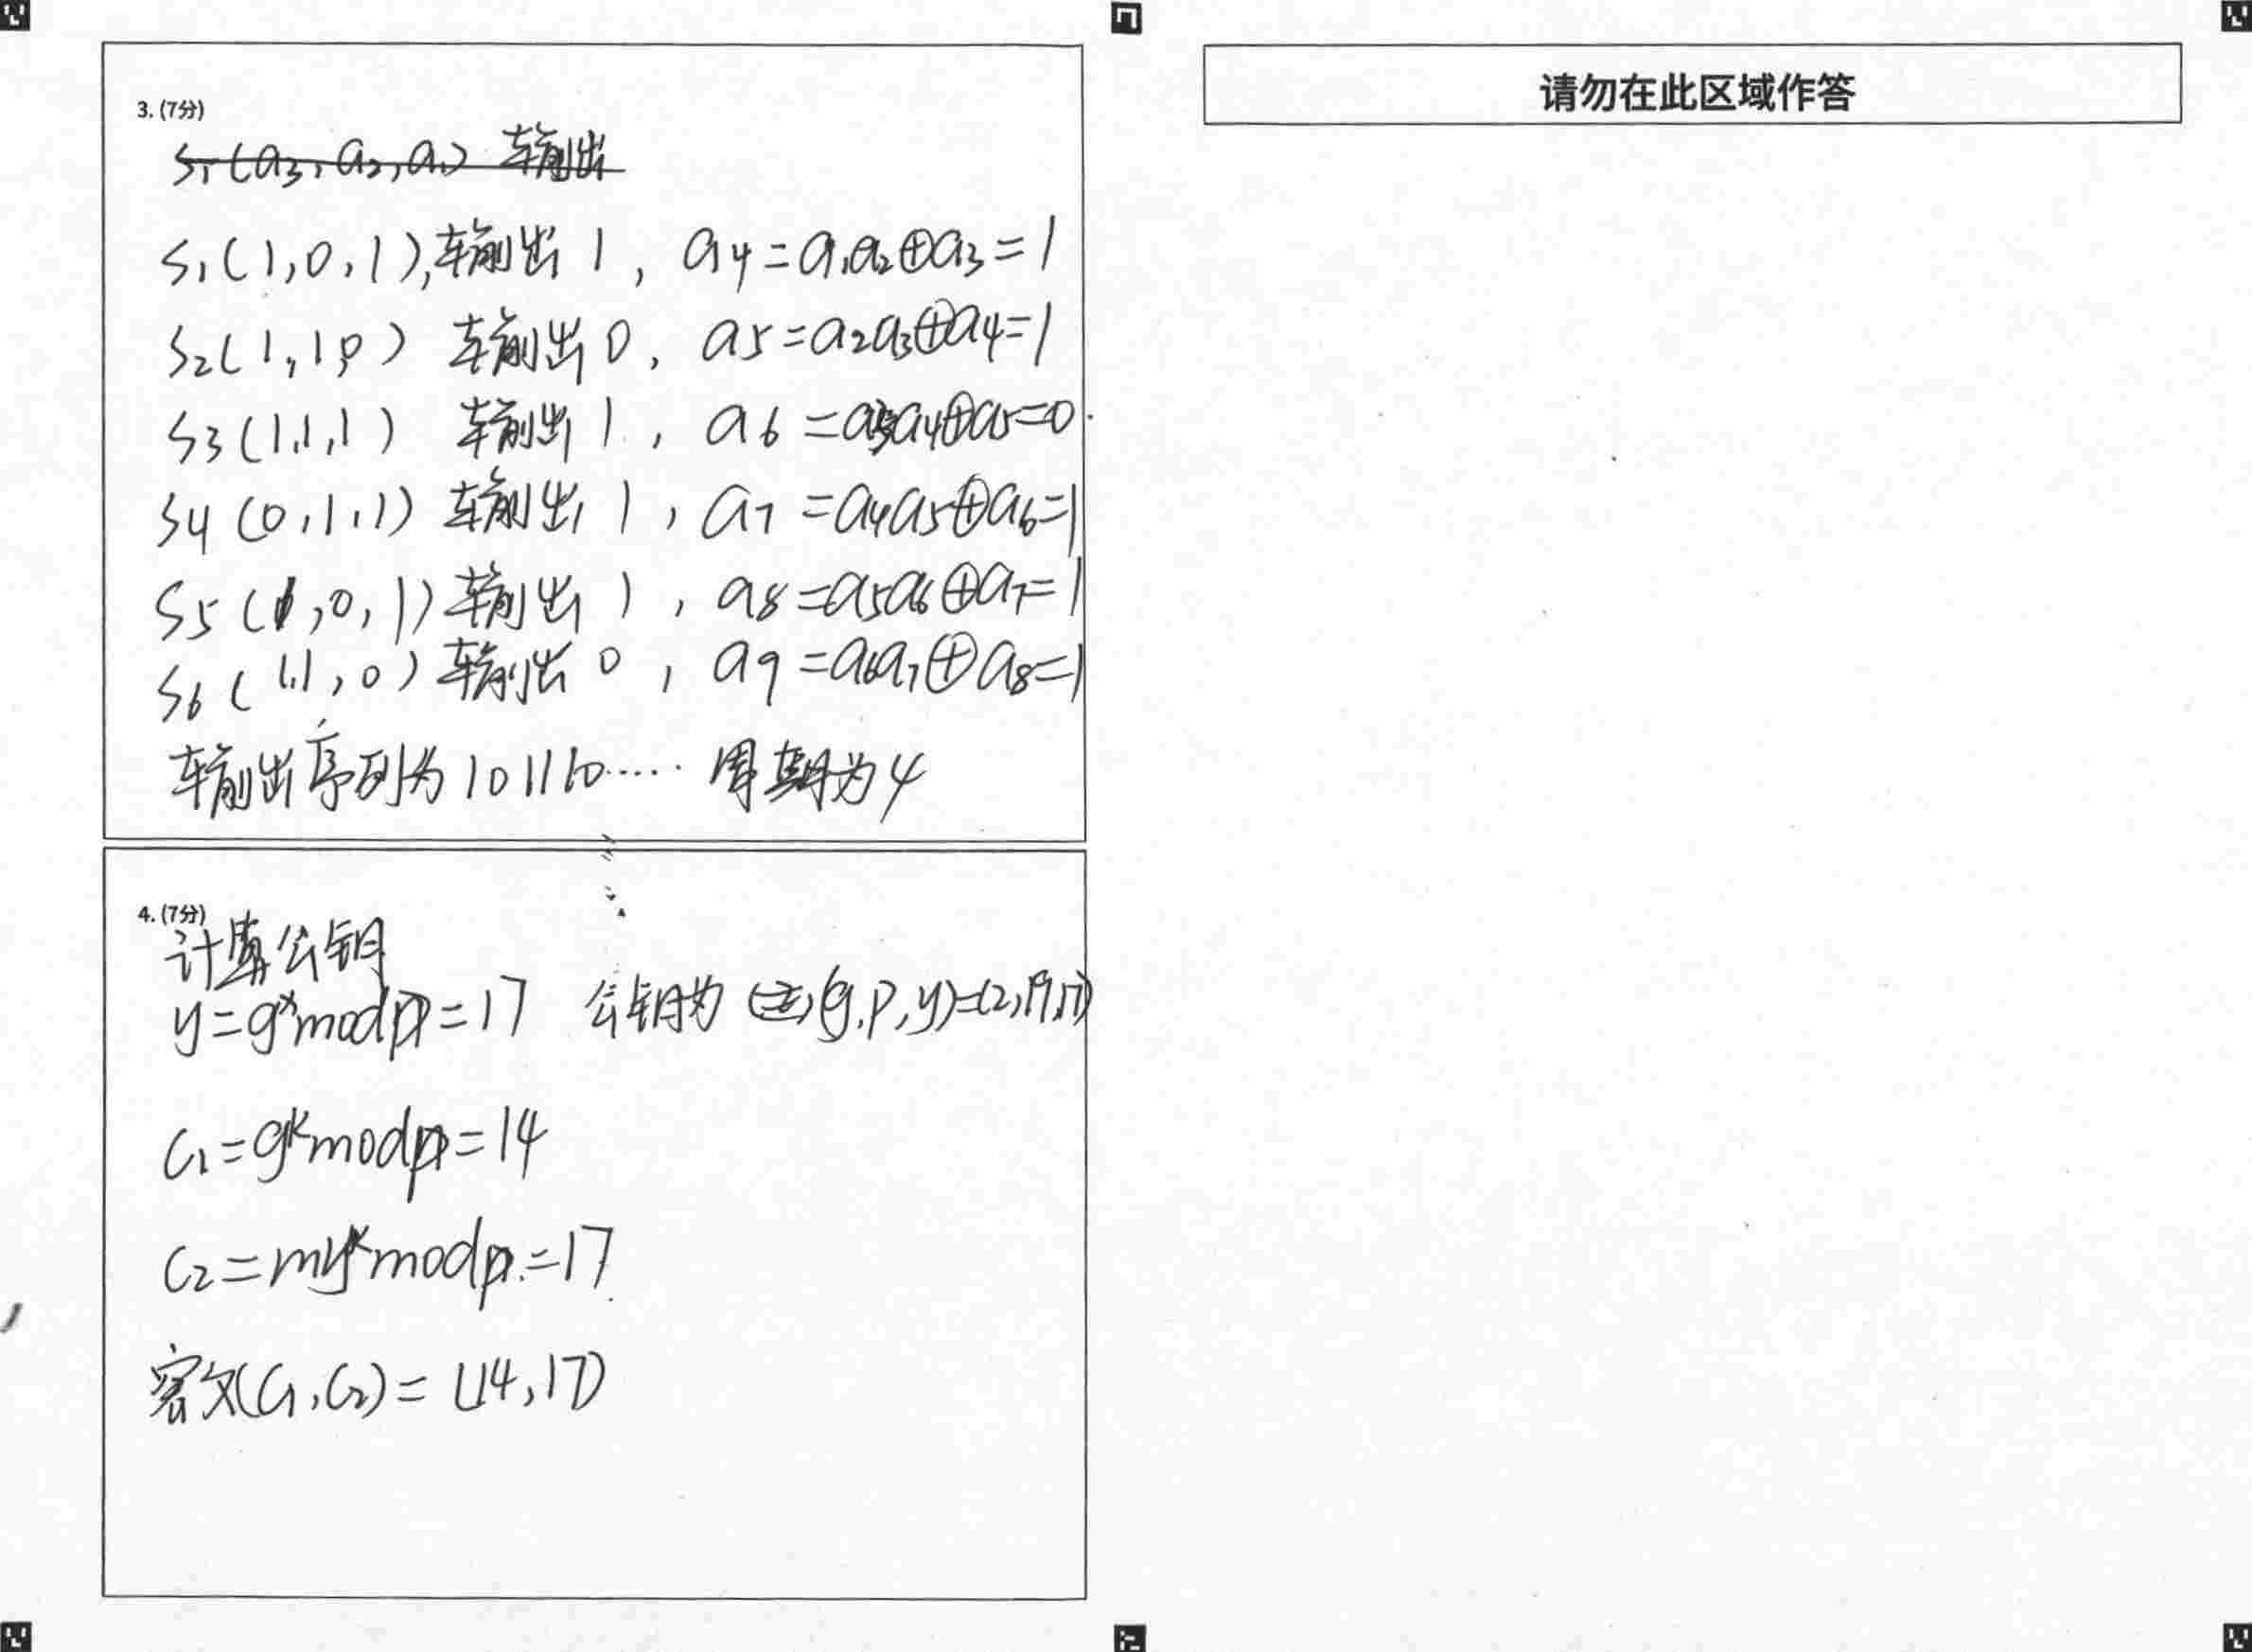 请勿在此区域作答
3. (7分)
S₁(a₃,a₂,a₁) 输出
S₁(1,0,1),输出1, a4=a₁a₂⊕a₃=1
S₂(1,1,0) 输出0, a5=a₂a₃⊕a4=1
S3(1,1,1) 输出1, a6=a3a4⊕a5=0
S4(0,1,1) 输出1, a7=a4a5⊕a6=1
S5(1,0,1) 输出1, a8=a5a6⊕a7=1
S6(1,1,0) 输出0, a9=a6a7⊕a8=1
输出序列为101110…… 周期为4
4. (7分)
计算公钥
y=gˣmodp=17 公钥为(g,p,y)=(2,19,17)
C₁=gᵏmodp=14
C₂=myᵏmodp=17
密文(C₁,C₂)=(14,17)